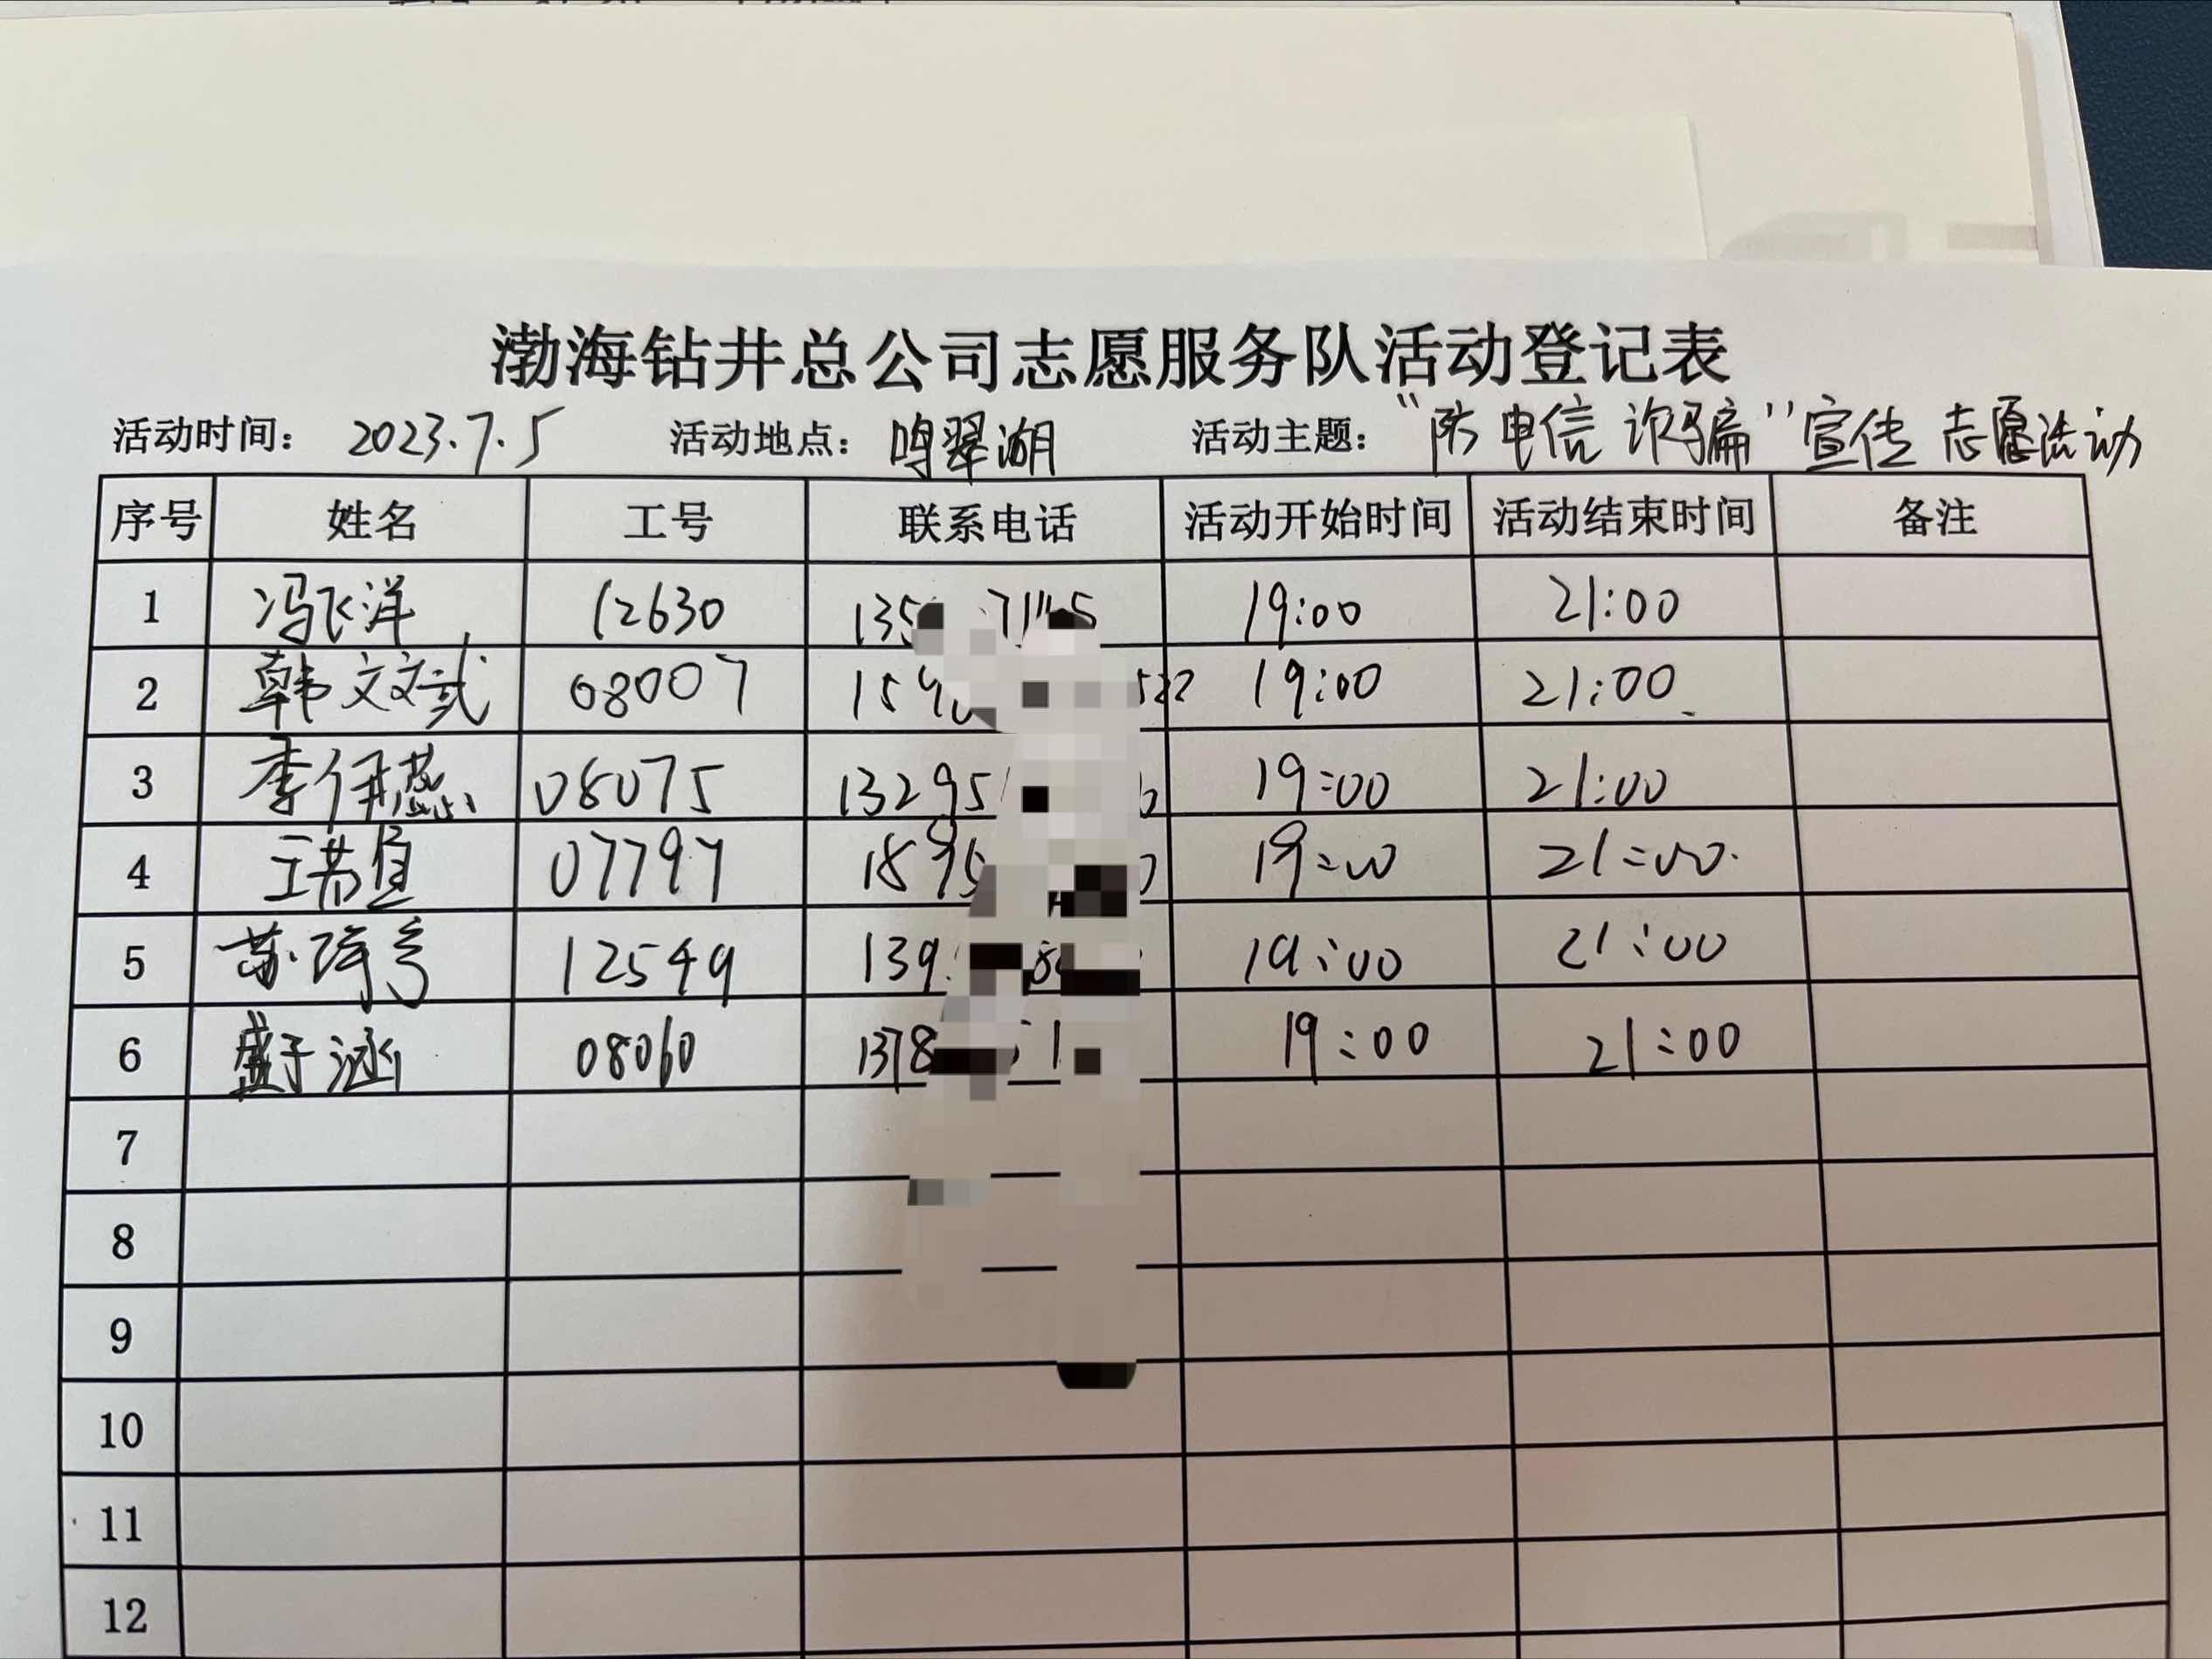 渤海钻井总公司志愿服务队活动登记表
活动时间： 2023.7.5 活动地点： 鸣翠湖 活动主题： “防电信诈骗”宣传志愿活动
序号 姓名 工号 联系电话 活动开始时间 活动结束时间 备注
1 冯飞洋 12630 135 19:00 21:00
2 韩文斌 08007 159 19:00 21:00
3 李伊蕊 08075 13295 19:00 21:00
4 07797 1895 19:00 21:00
5 苏 12549 139 19:00 21:00
6 盛于涵 08060 1378 19:00 21:00
7
8
9
10
11
12